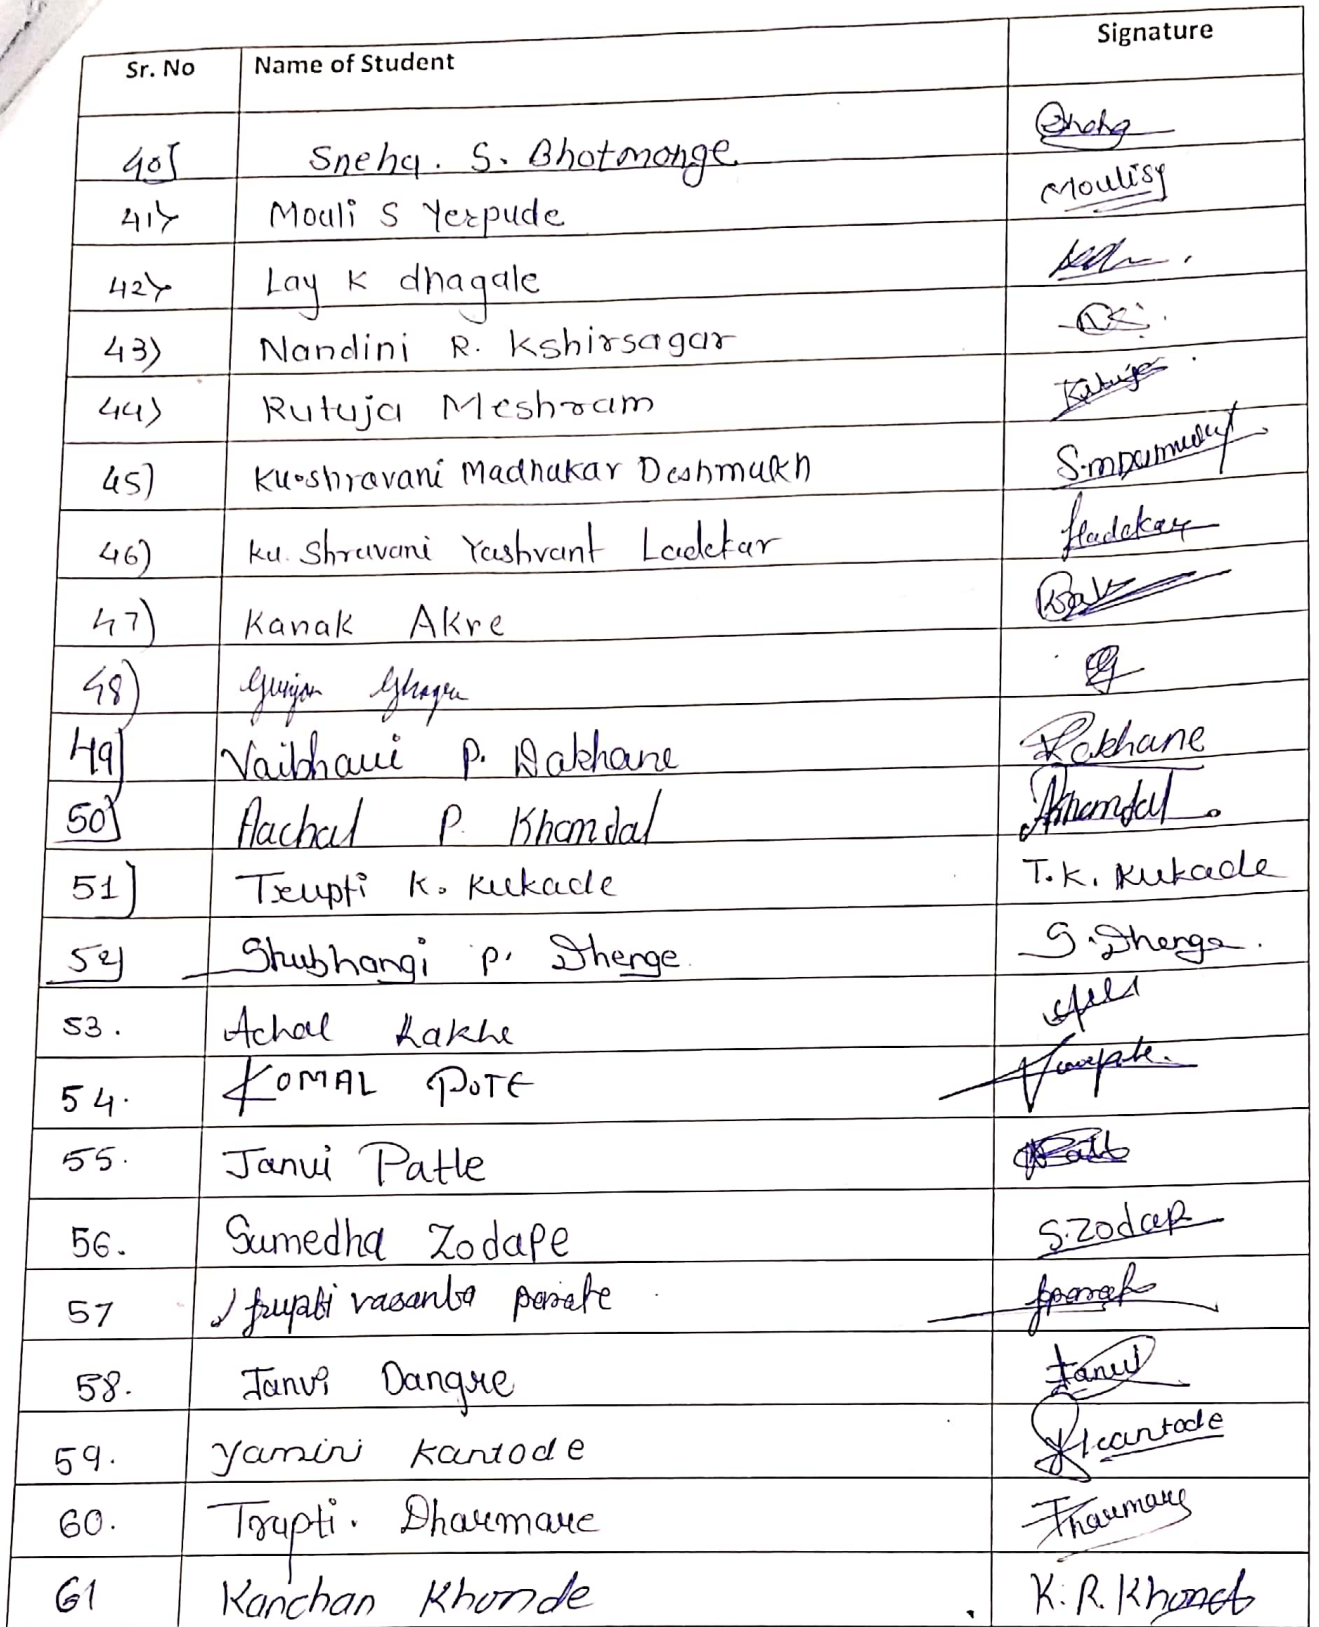 Sr. No Name of Student Signature
40] Sneha. S. Bhotmonge
41) Mouli S Yerpude Moulisy
42) Lay K dhagale
43) Nandini R. Kshirsagar
44) Rutuja Meshram
45) Ku.shravani Madhukar Deshmukh
46) Ku. Shravani Yashvant Ladekar Ladekar
47) Kanak Akre
48) Gunjan
49] Vaibhavi P. Dakhane Dakhane
50] Aachal P. Khandal AKhandal
51) Trupti K. Kukade T.K. Kukade
52] Shubhangi P. Dhenge S.Dhenge.
53. Achal Lakhe
54. KOMAL POTE
55. Janvi Patle
56. Sumedha Zodape S.Zodap
57 Trupti vasanta parate
58. Janvi Dangre Janvi
59. Yamini Kantode YKantode
60. Trupti. Dharmare Tharmare
61 Kanchan Khonde K.R.Khonde